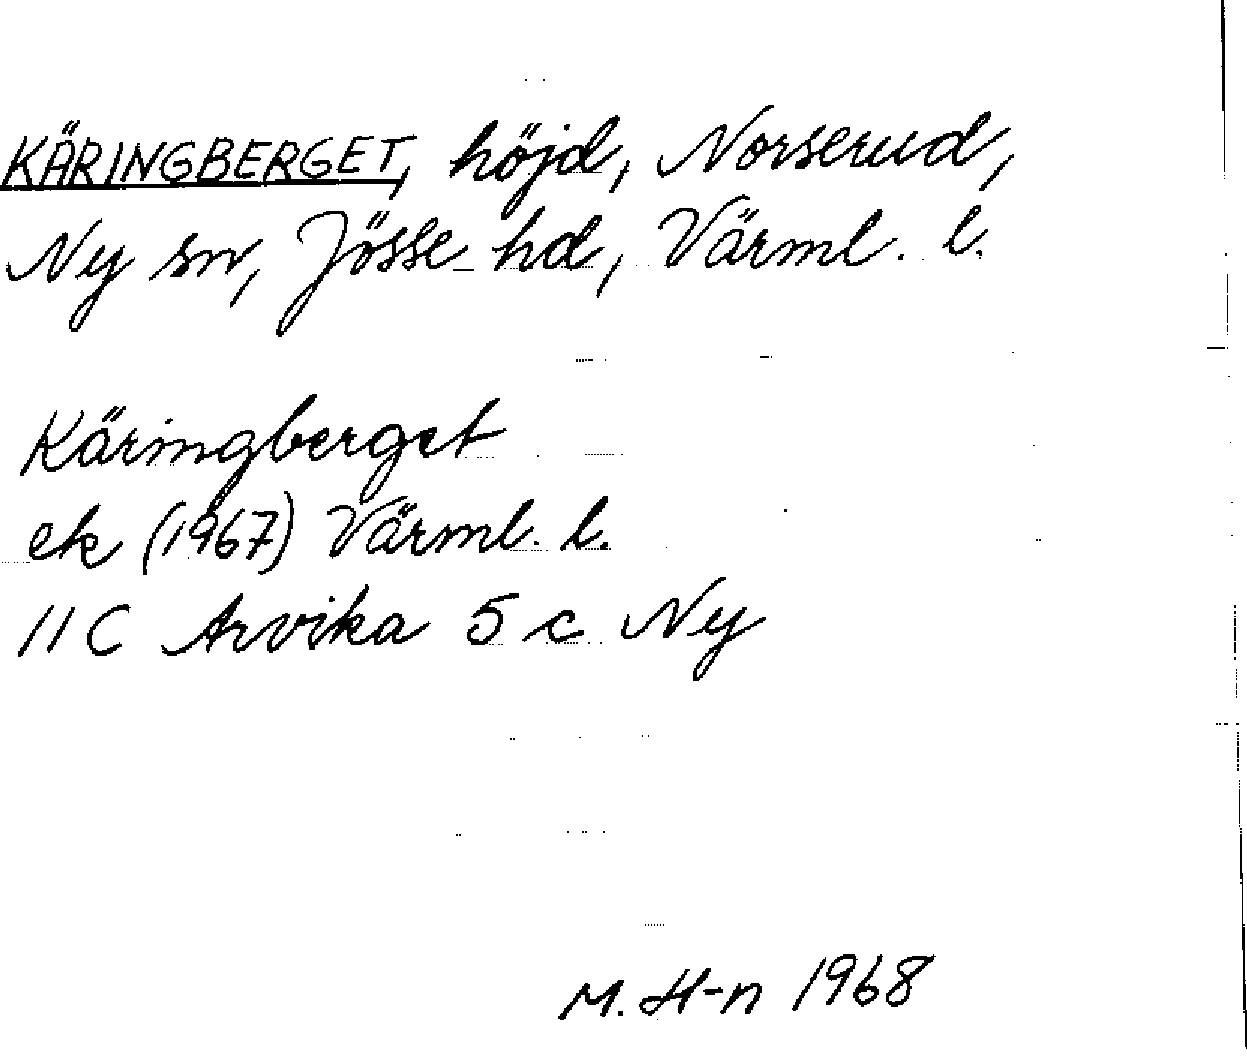 KÄRINGBERGET, höjd, Norserud,
Ny sn, Jösse hd, Värml. l.
Käringberget
ek (1967) Värml. l.
11 C Arvika 5 c Ny
M. H-n 1968